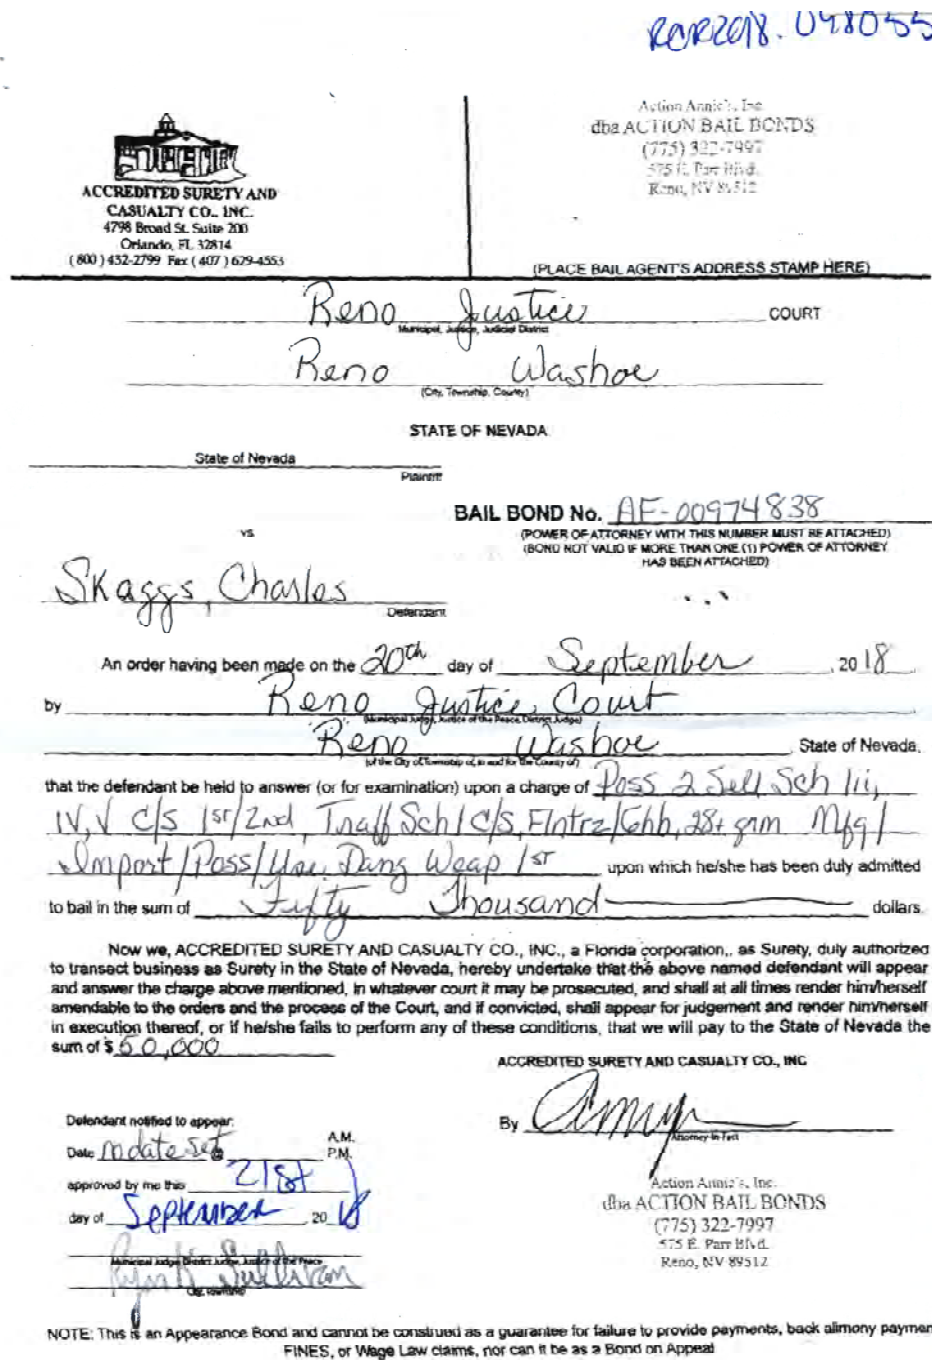 RCR2018-098055
Action Annie's, Inc.
dba ACTION BAIL BONDS
(775) 322-7997
575 E. Parr Blvd.
Reno, NV 89512
ACCREDITED SURETY AND
CASUALTY CO., INC.
4798 Broad St. Suite 200
Orlando, FL 32814
(800) 432-2799 Fax (407) 629-4553
(PLACE BAIL AGENT'S ADDRESS STAMP HERE)
Reno Justice COURT
Municipal, Justice, Judicial District
Reno Washoe
(City, Township, County)
STATE OF NEVADA
State of Nevada
Plaintiff
BAIL BOND No. AF-00974838
(POWER OF ATTORNEY WITH THIS NUMBER MUST BE ATTACHED)
(BOND NOT VALID IF MORE THAN ONE (1) POWER OF ATTORNEY
HAS BEEN ATTACHED)
vs
Skaggs, Charles
Defendant
An order having been made on the 20th day of September, 2018
by Reno Justice Court
(Municipal Judge, Justice of the Peace, District Judge)
Reno Washoe State of Nevada,
(of the City of Township of, in and for the County of)
that the defendant be held to answer (or for examination) upon a charge of Poss 2 Sell Sch iii,
IV, V C/S 1st/2nd, Traff Sch 1 C/S, Flntrz/Ghb, 28+ grm Mfg/
Import/Poss/Use Dang Weap 1st upon which he/she has been duly admitted
to bail in the sum of Fifty Thousand dollars.
Now we, ACCREDITED SURETY AND CASUALTY CO., INC., a Florida corporation,, as Surety, duly authorized
to transact business as Surety in the State of Nevada, hereby undertake that the above named defendant will appear
and answer the charge above mentioned, in whatever court it may be prosecuted, and shall at all times render him/herself
amendable to the orders and the process of the Court, and if convicted, shall appear for judgement and render him/herself
in execution thereof, or if he/she fails to perform any of these conditions, that we will pay to the State of Nevada the
sum of $ 50,000
ACCREDITED SURETY AND CASUALTY CO., INC
Defendant notified to appear:
Date no date set A.M.
P.M.
By
Attorney-In-Fact
approved by me this 21st
day of September, 2018
Municipal Judge District Judge, Justice of the Peace
Ryan K Sullivan
City, township
Action Annie's, Inc.
dba ACTION BAIL BONDS
(775) 322-7997
575 E. Parr Blvd.
Reno, NV 89512
NOTE: This is an Appearance Bond and cannot be construed as a guarantee for failure to provide payments, back alimony paymen
FINES, or Wage Law claims, nor can it be as a Bond on Appeal